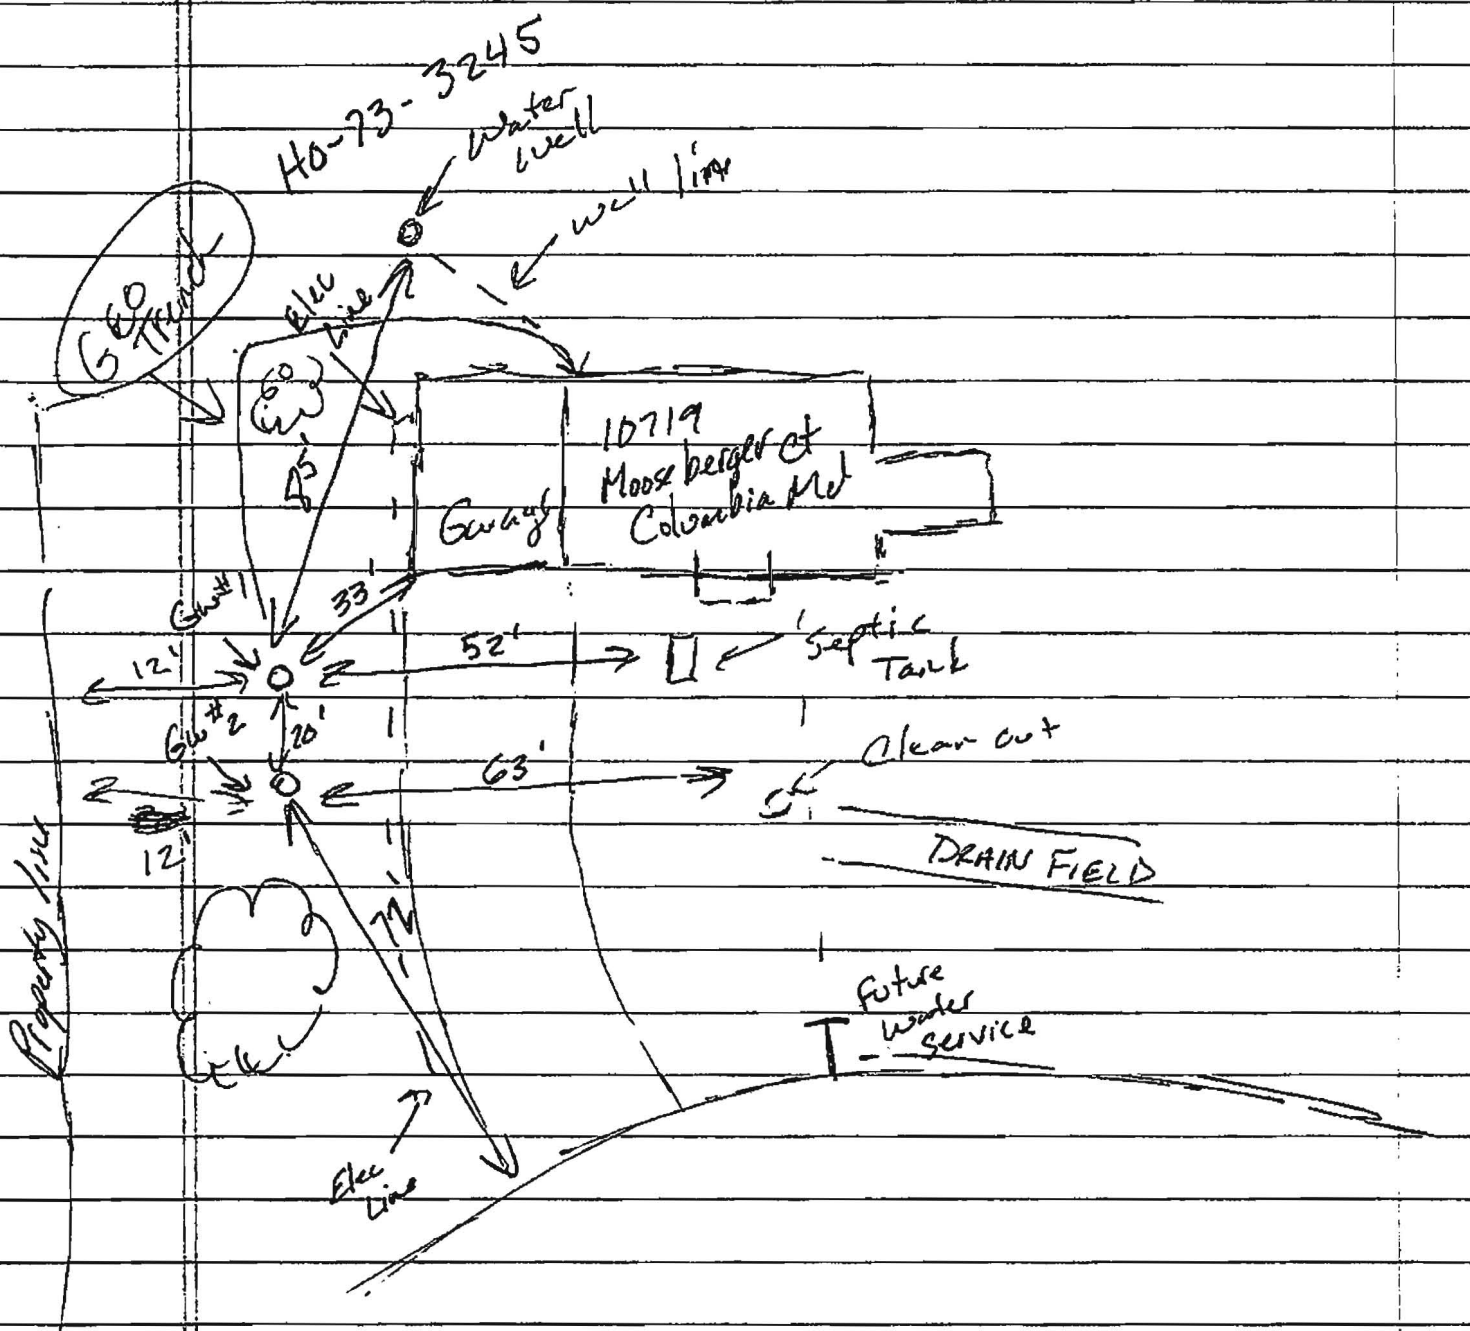 HO-73-3245
Water
well
well line
GEO
Trench
Elec
Line
60
85'
10719
Mooseberger ct
Columbia Md
Garage
Gw#1
33'
12'
52'
Septic
Tank
Gw#2
20'
63'
Clean out
12'
DRAIN FIELD
Property line
72'
Future
Water
service
Elec
Line